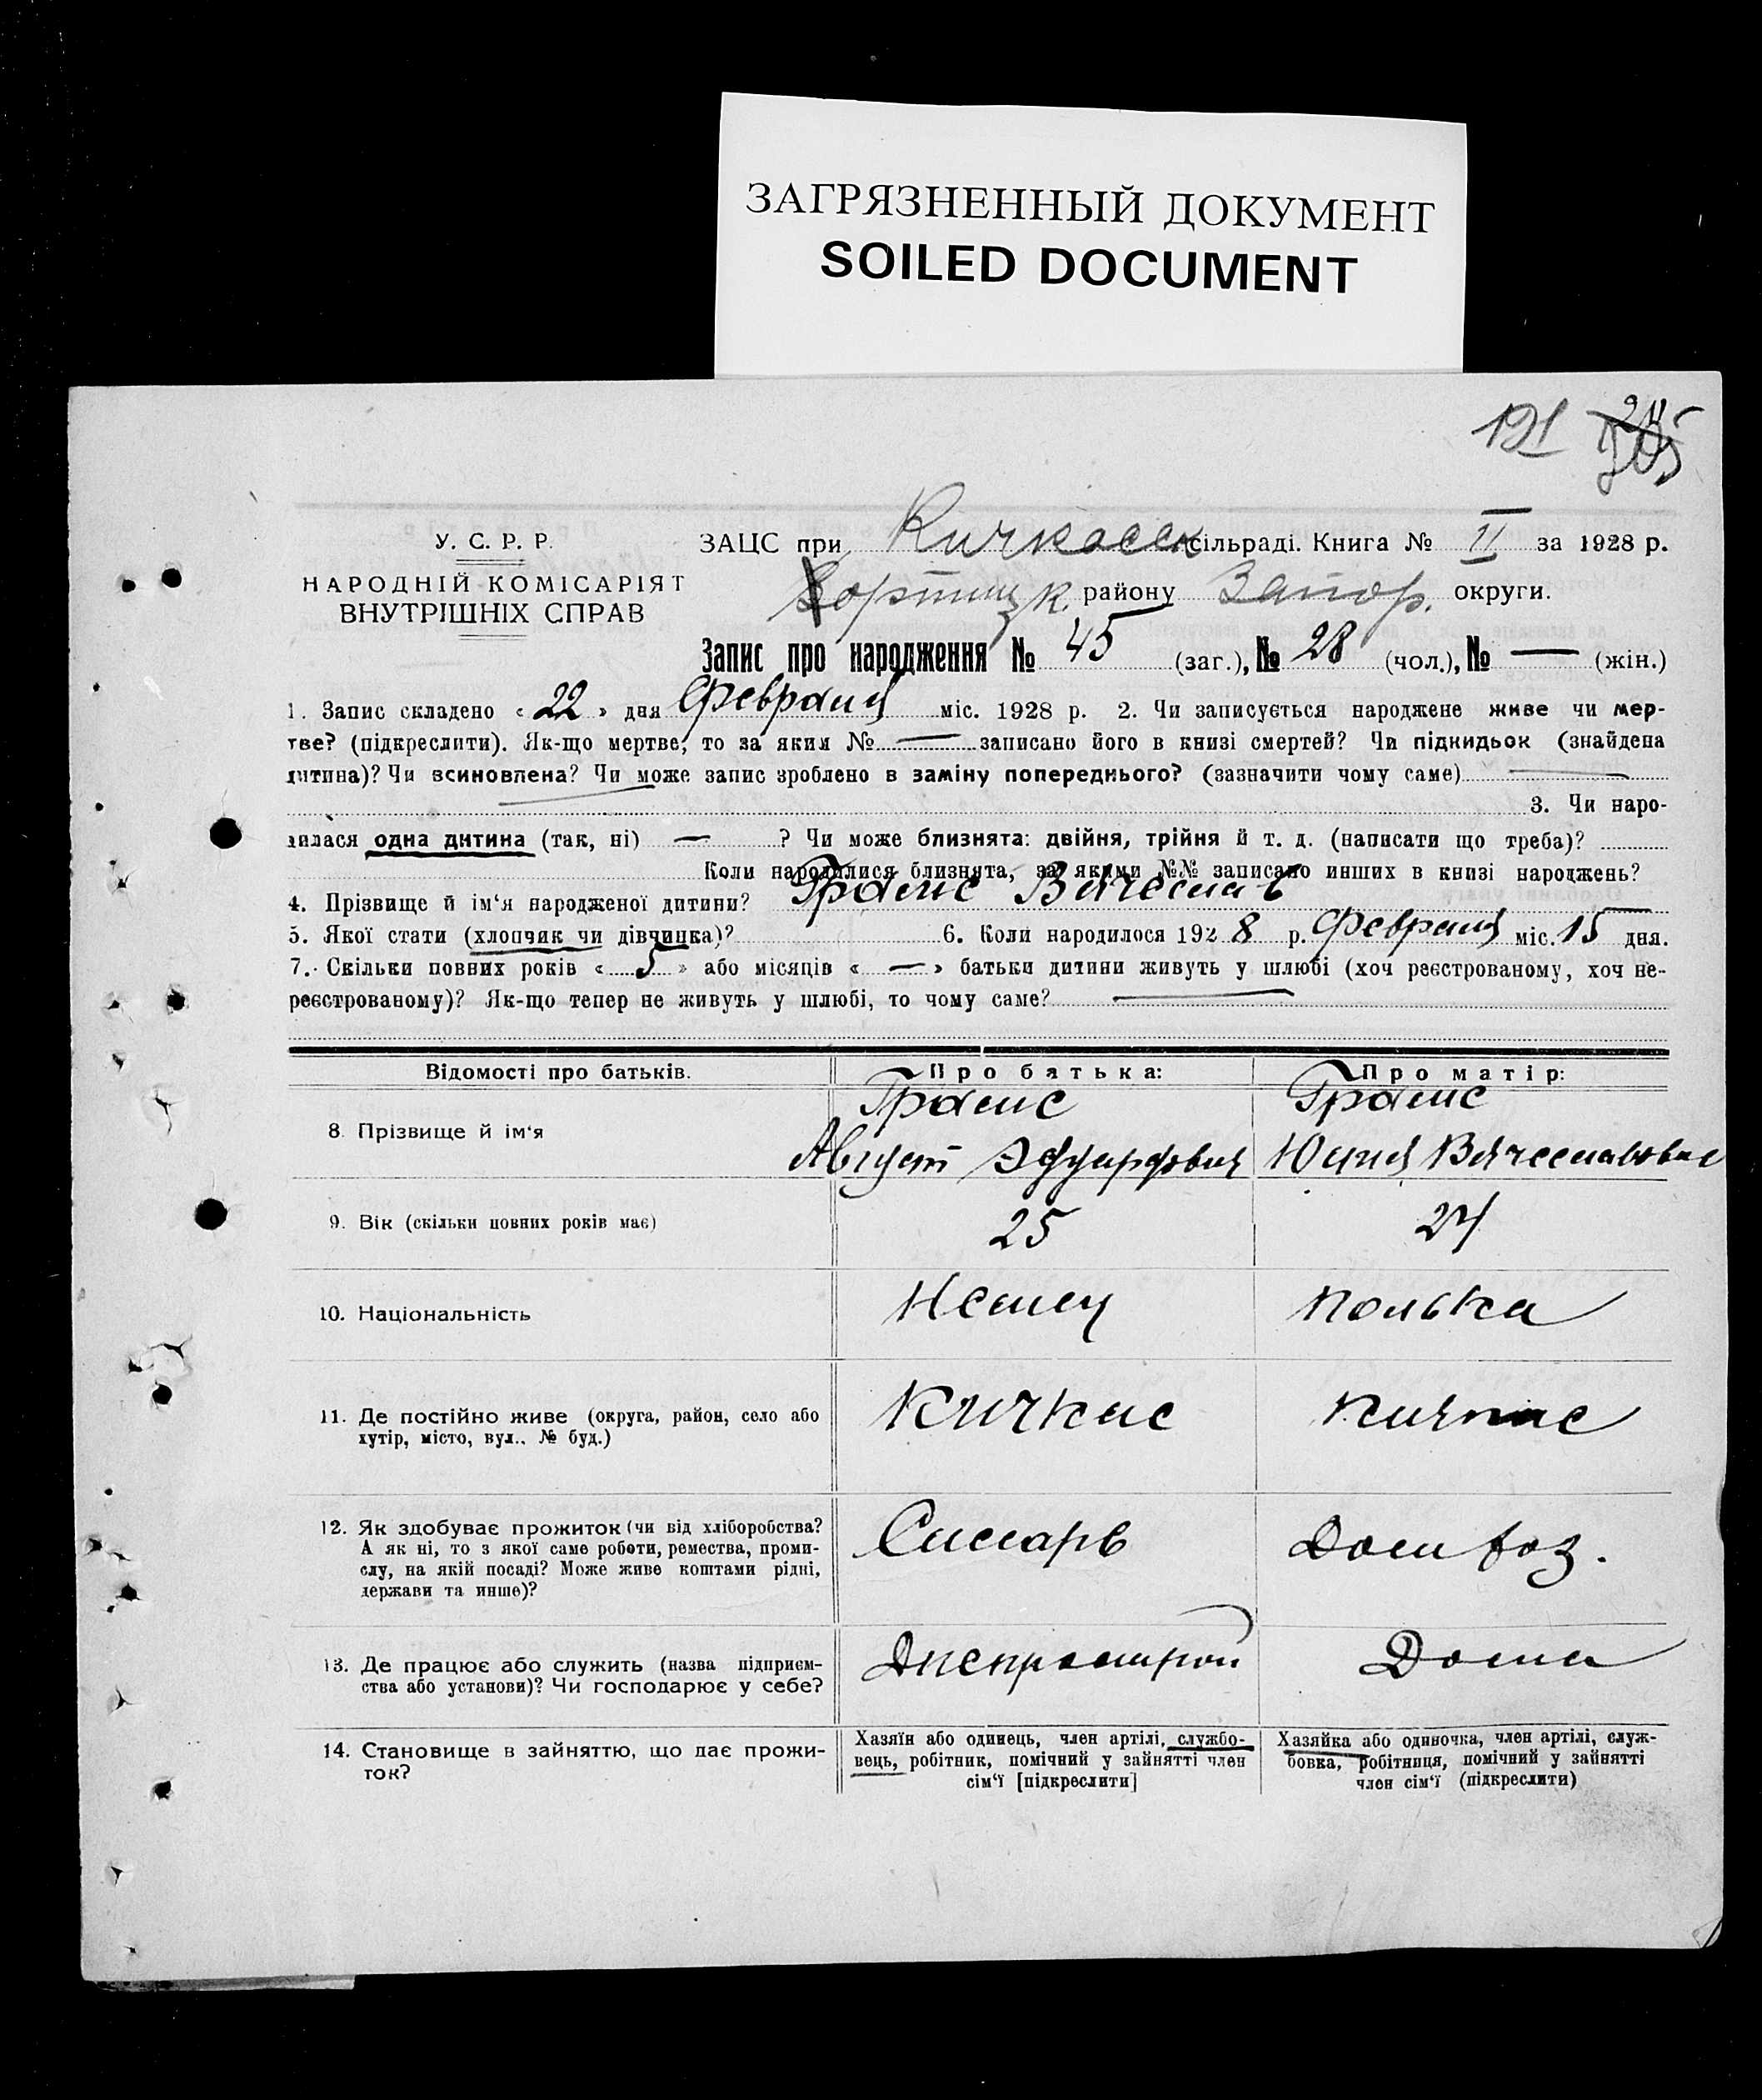 ЗАГРЯЗНЕННЫЙ ДОКУМЕНТ
SOILED DOCUMENT
191
У. С. Р. Р.
НАРОДНІЙ КОМІСАРІЯТ
ВНУТРІШНІХ СПРАВ
ЗАЦС при Кичкасск сільраді. Книга № II за 1928 р.
Хортицк. району Запор. округи.
Запис про народження № 45 (заг.), № 28 (чол.), № — (жін.)
1. Запис складено « 22 » дня Февраля міс. 1928 р. 2. Чи записується народжене живе чи мер-
тве? (підкреслити). Як-що мертве, то за яким № — записано його в книзі смертей? Чи підкидьок (знайдена
дитина)? Чи всиновлена? Чи може запис зроблено в заміну попереднього? (зазначити чому саме) —
3. Чи наро-
дилася одна дитина (так, ні) — ? Чи може близнята: двійня, трійня й т. д. (написати що треба)?
Коли народилися близнята, за якими №№ записано инших в книзі народжень?
4. Прізвище й ім‘я народженої дитини? Вячеслав
5. Якої стати (хлопчик чи дівчинка)? 6. Коли народилося 1928 р. Февраля міс. 15 дня.
7. Скільки повних років « 5 » або місяців « — » батьки дитини живуть у шлюбі (хоч реєстрованому, хоч не-
реєстрованому)? Як-що тепер не живуть у шлюбі, то чому саме? —
Відомості про батьків. Про батька: Про матір:
8. Прізвище й ім‘я Август Эдуардович Юлия Вячеславовна
9. Вік (скільки повних років має) 25 24
10. Національність Немец Полька
11. Де постійно живе (округа, район, село або
хутір, місто, вул., № буд.) Кичкас Кичкас
12. Як здобуває прожиток (чи від хліборобства?
А як ні, то з якої саме роботи, ремества, проми-
слу, на якій посаді? Може живе коштами рідні,
держави та инше)? Слесарь Дом хоз.
13. Де працює або служить (назва підприєм-
ства або установи)? Чи господарює у себе? Днепрострой Дома
14. Становище в зайняттю, що дає прожи-
ток?
Хазяїн або одинець, член артілі, службо-
вець, робітник, помічний у зайнятті член
сім‘ї [підкреслити]
Хазяйка або одиночка, член артілі, служ-
бовка, робітниця, помічний у зайнятті
член сім‘ї (підкреслити)